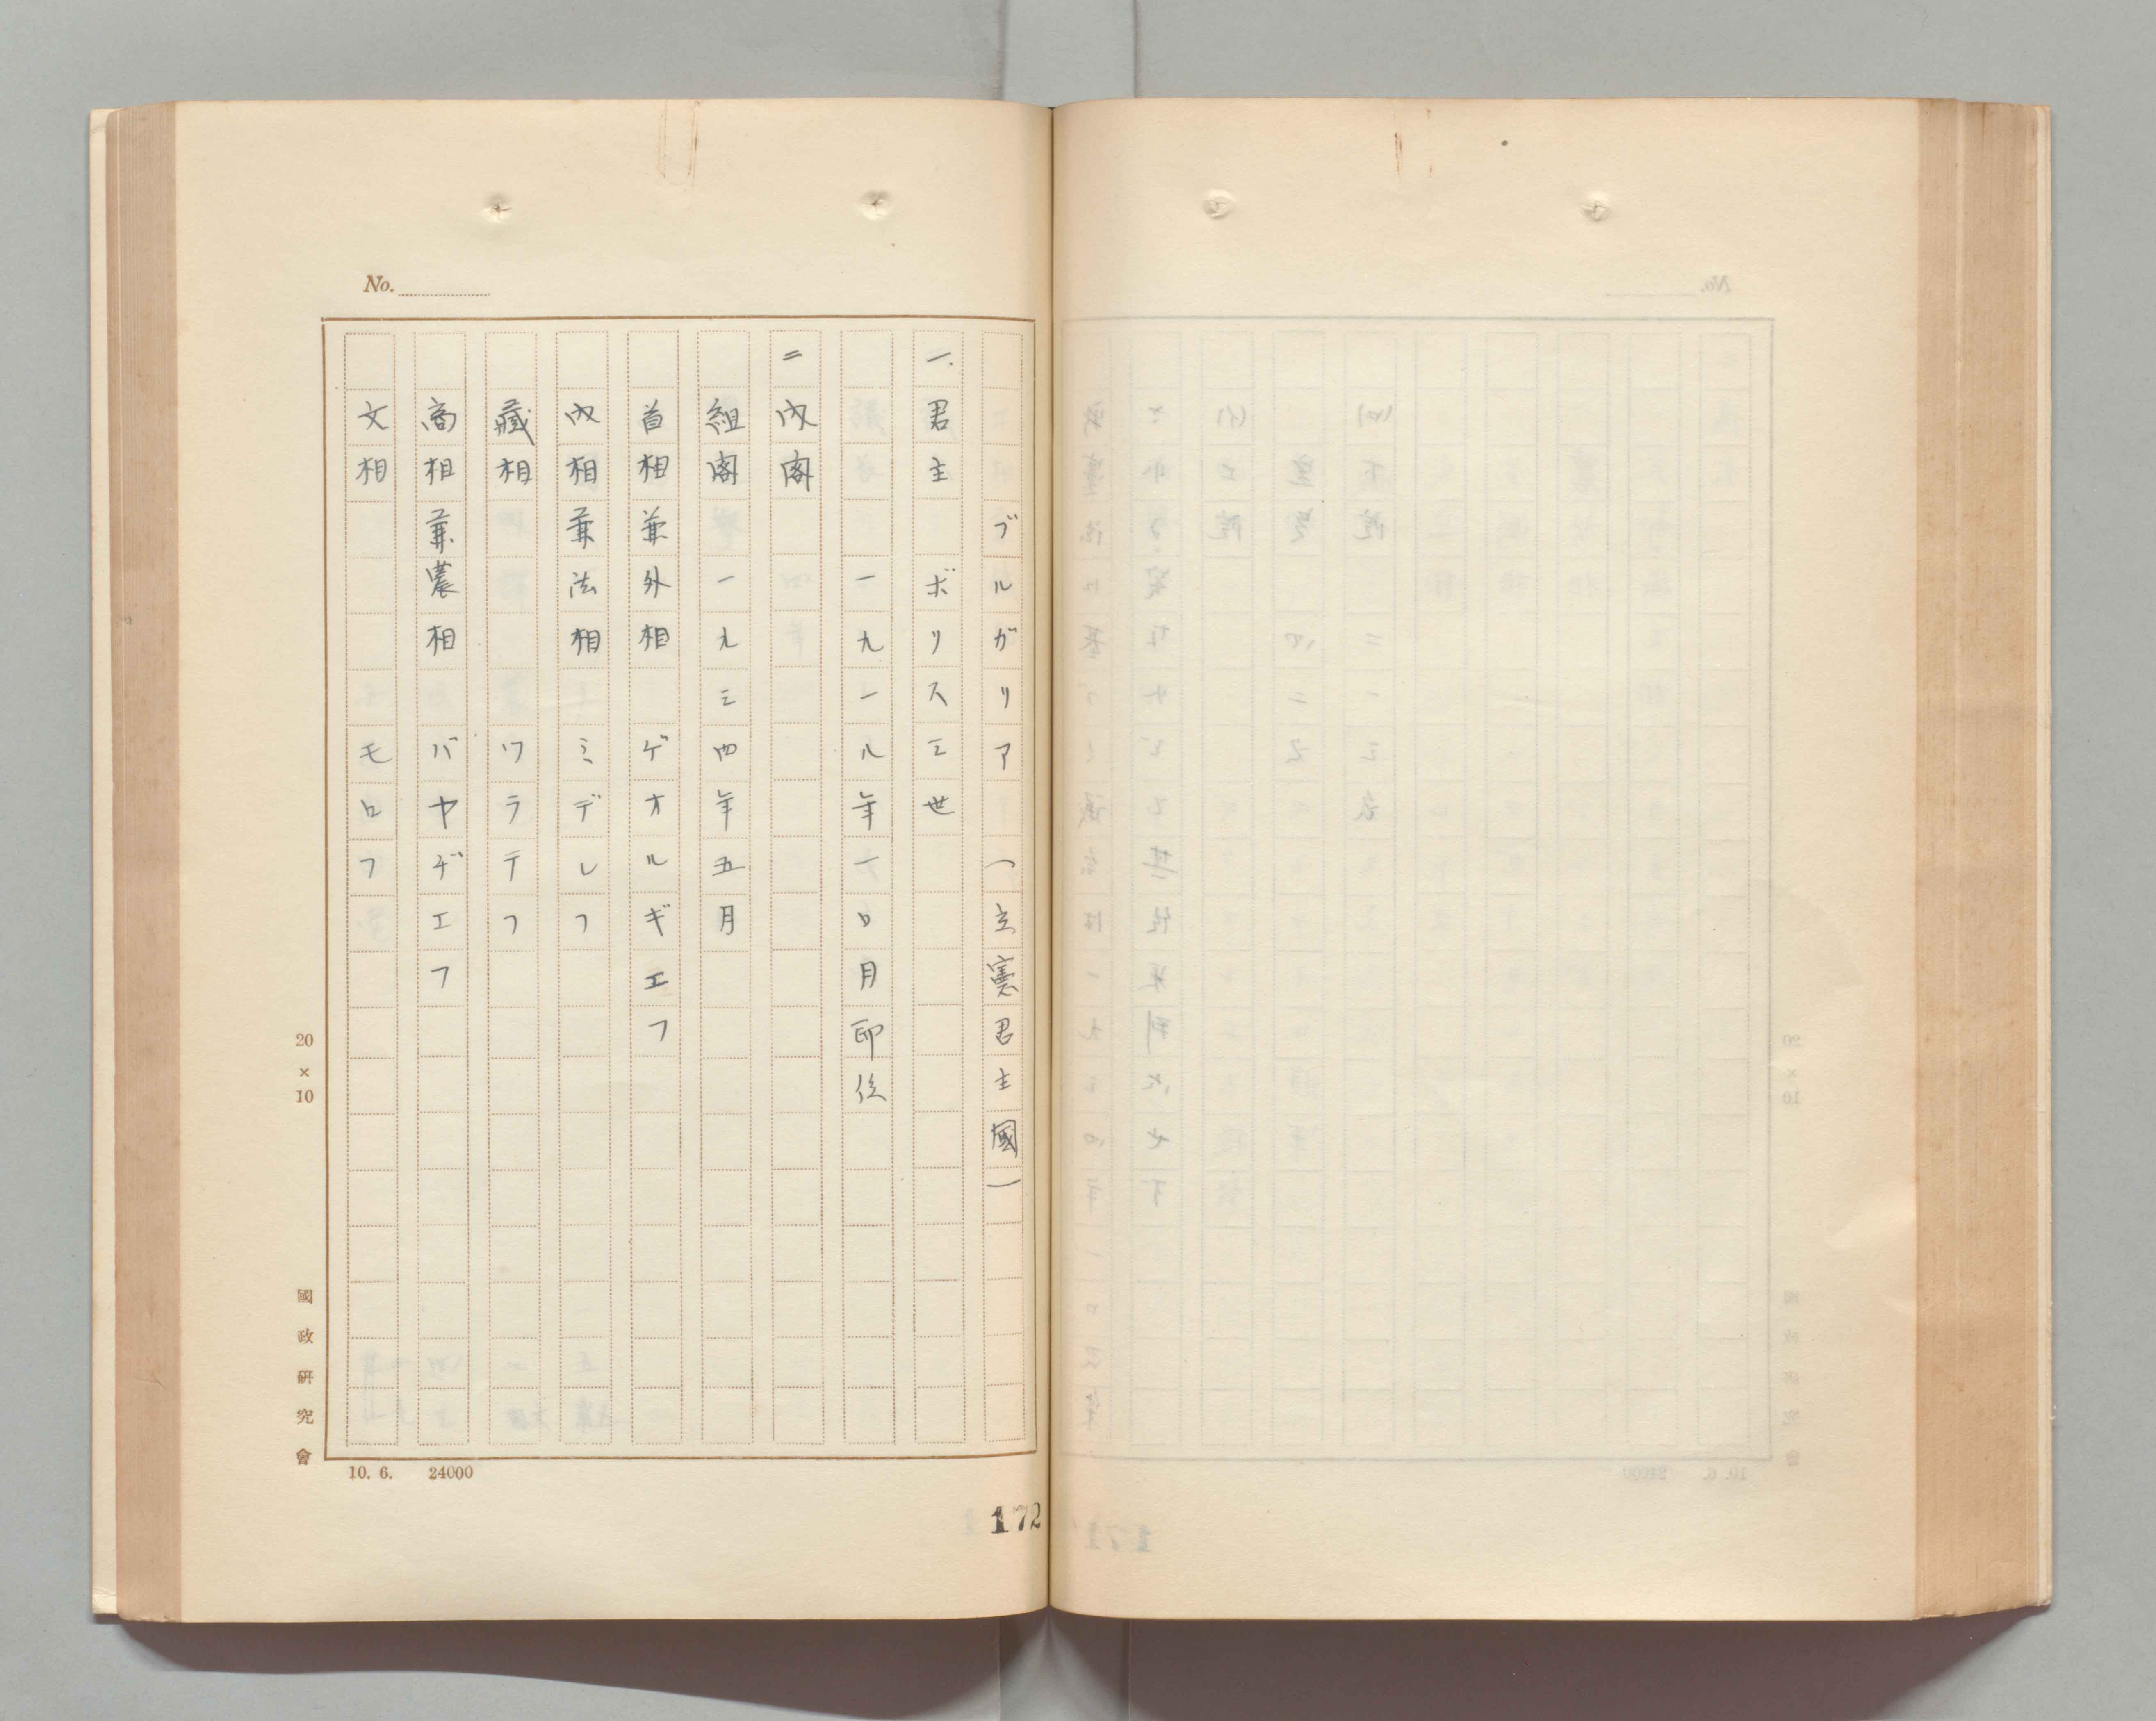 No.
ブルガリア （立憲君主國）
一.君主 ボリス三世
一九一八年一〇月即位
二 内閣
組閣 一九三四年五月
首相兼外相 ゲオルギエフ
内相兼法相 ミデレフ
藏相 ワラテフ
商相兼農相 バヤヂエフ
文相 モロフ
20×10
國政研究會
10. 6. 24000
172